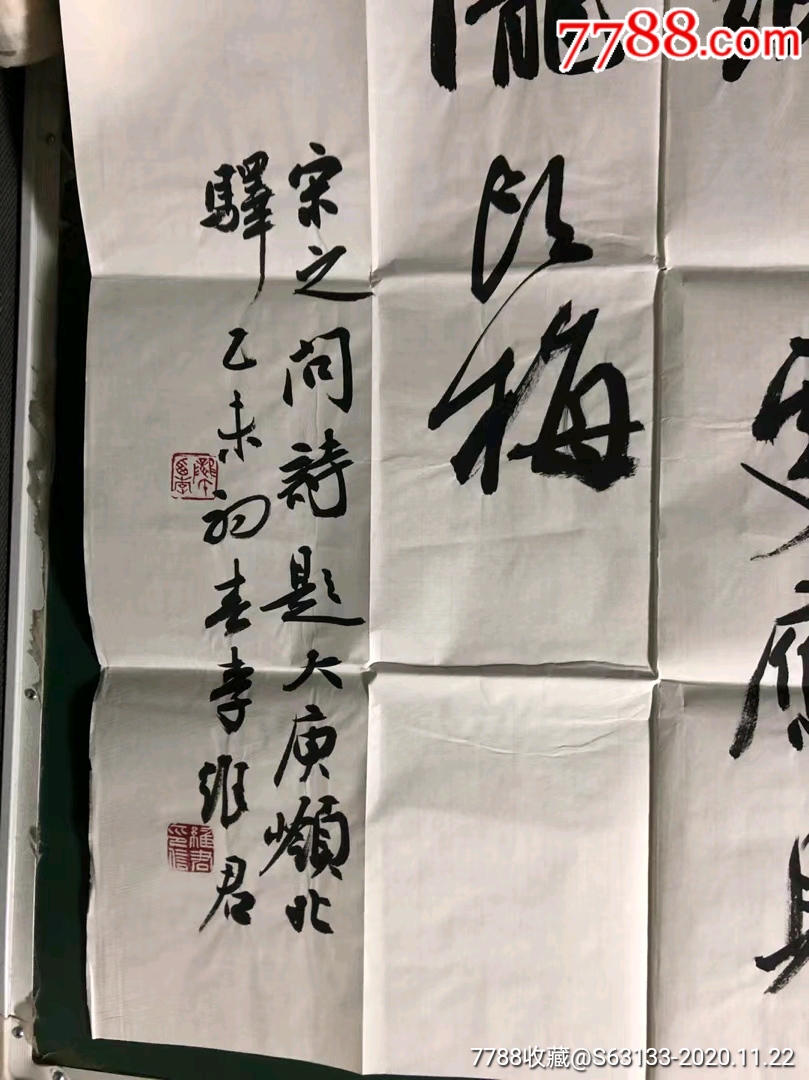 7788.com
應見
隴頭梅
宋之問詩題大庾嶺北
驛乙未初春李維君
維君印信
7788收藏@S63133-2020.11.22